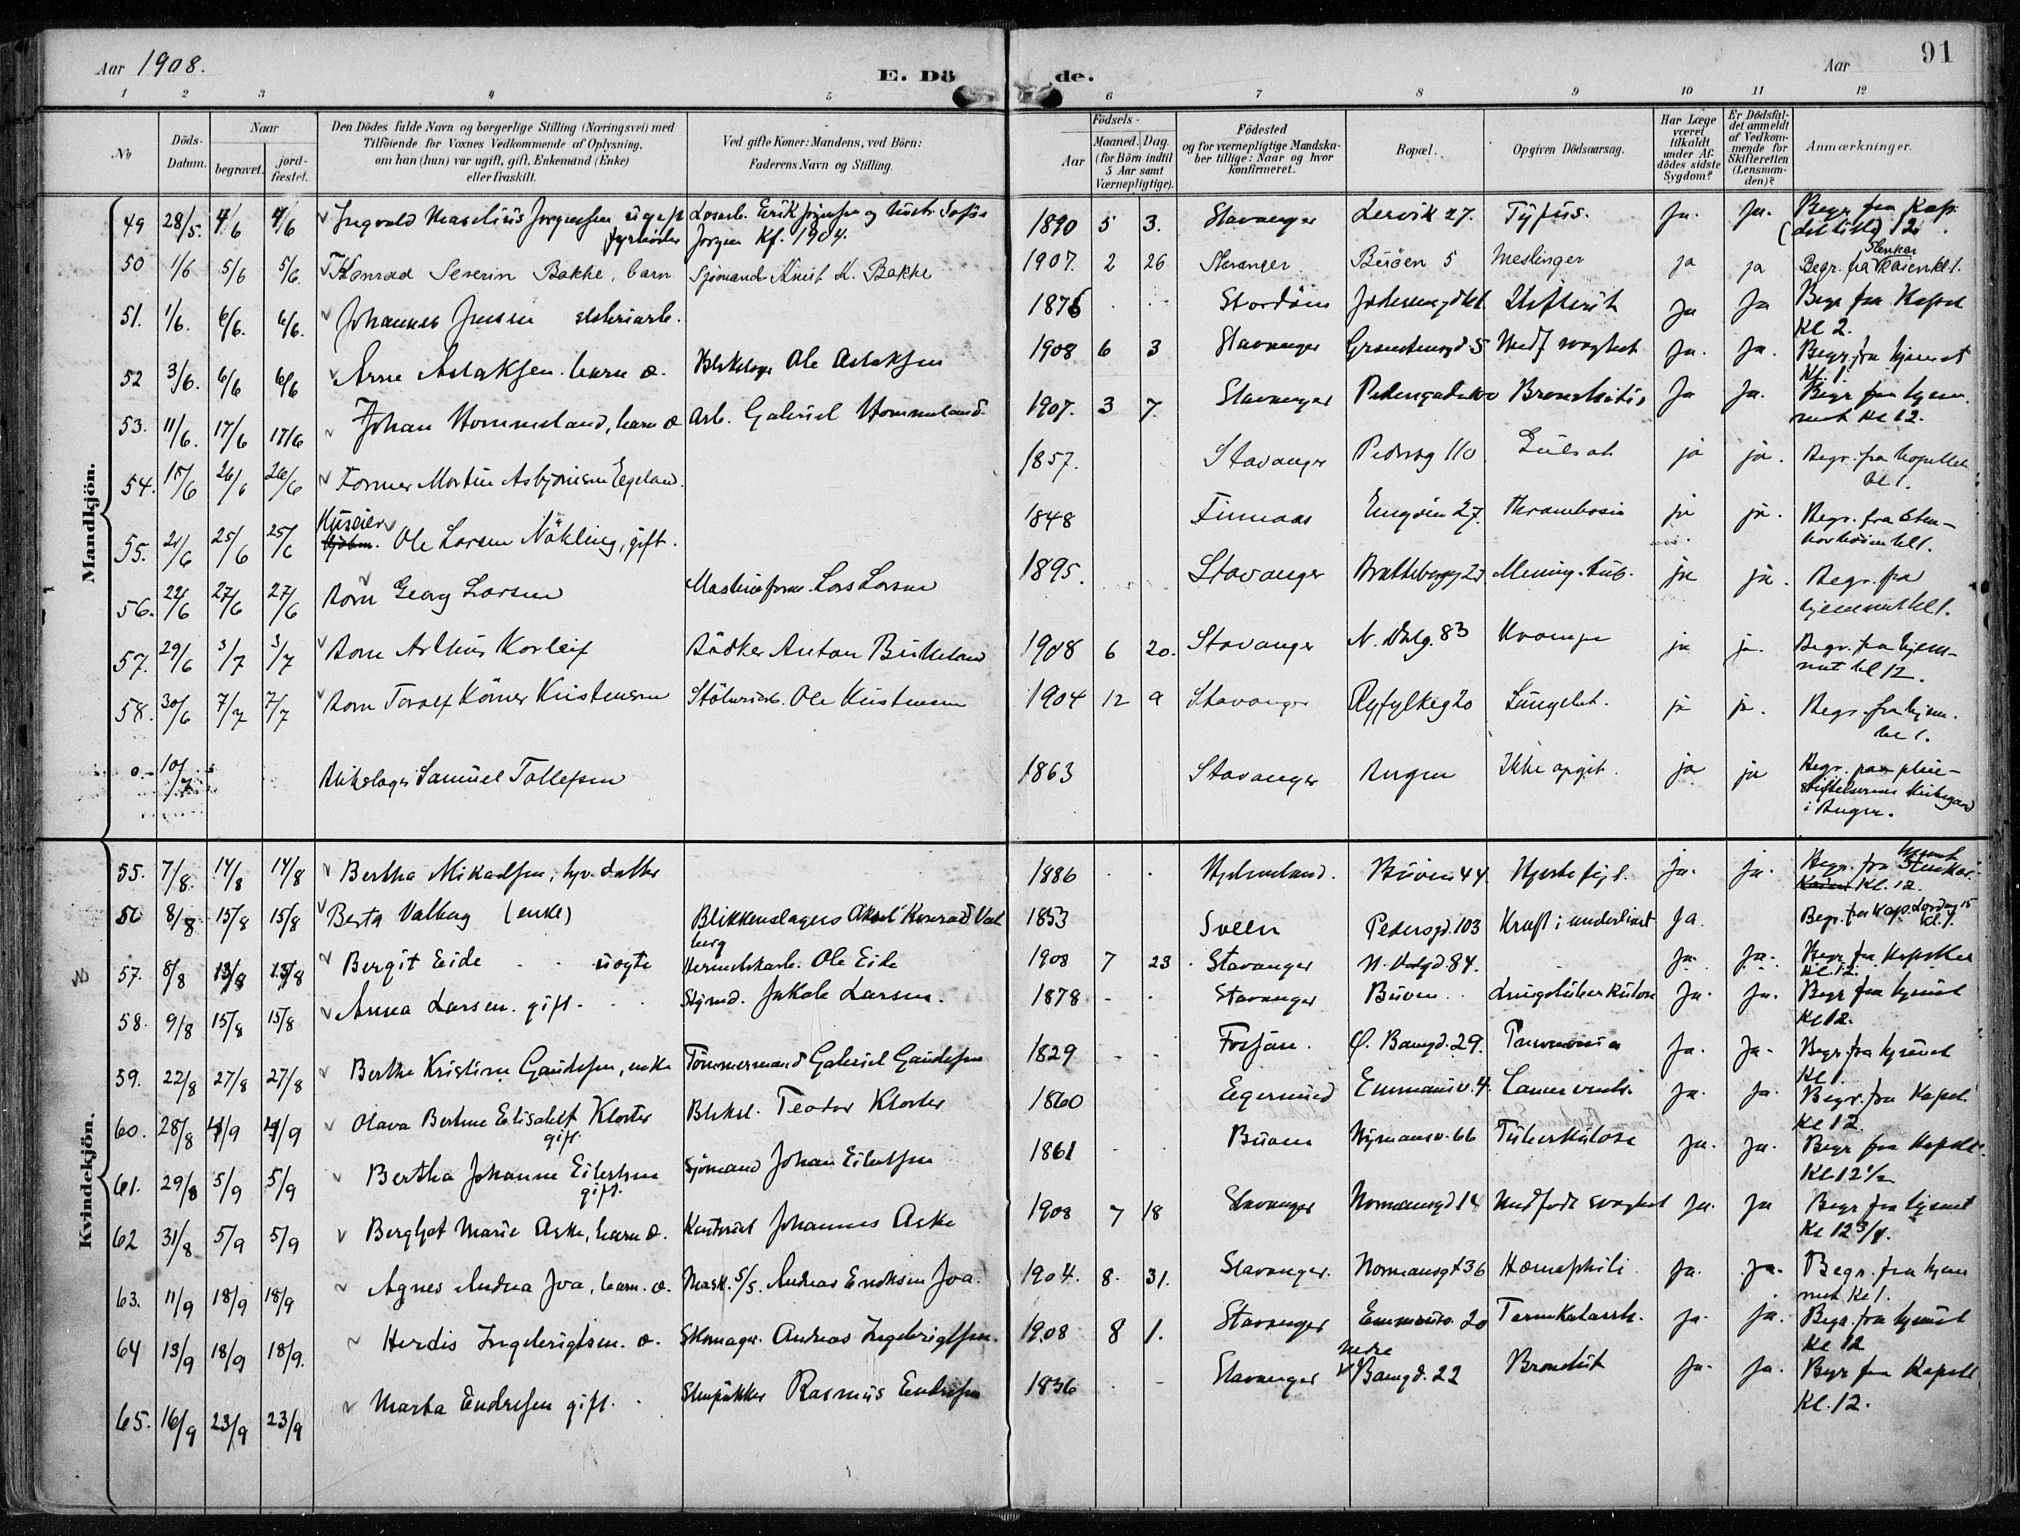 Aar 1908.
E. Dö de.
Aar
91
1 2 3 4 5 6 7 8 9 10 11 12
No
Döds-Datum.
Naar
begravet.
jord-fæstet.
Den Dödes fulde Navn og borgerlige Stilling (Næringsvei) med
Tilföiende for Voxnes Vedkommende af Oplysning,
om han (hun) var ugift, gift, Enkemand (Enke)
eller fraskilt.
Ved gifte Koner: Mandens, ved Börn:
Faderens Navn og Stilling.
Födsels-
Aar
Maaned. Dag
(for Börn indtil
5 Aar samt
Værnepligtige).
Födested
og for værnepligtige Mandska-
ber tillige: Naar og hvor
konfirmeret.
Bopæl.
Opgiven Dödsaarsag.
Har Læge
været
tilkaldt
under Af-
dödes sidste
Sygdom?
Er Dödsfal-
det anmeldt
af Vedkom-
mende for
Skifteretten
(Lensman-
den)?
Anmærkninger.
Mandkjön.
49 28/5. 4/6 4/6 Ingvald Maselius Jørgensen ugift Losarb. Erik 1890 5 3. Stavanger Lervik 27. Tyfus. Ja. Ja. Begr. fra Kap.
fyrbøder Kf. 1904. (det lille) 12.
50 1/6 5/6 5/6. Konrad Severin Bakke, barn Sjömand Knut K. Bakke 1907. 2 26 Stavanger Buöen 5 Meslinger ja ja Begr. fra kl 1.
51. 1/6. 6/6. 6/6. Johannes Jensen 1876 Ja Ja Begr fra Kapel
Kl 2.
52 3/6. 6/6 6/6 Arne Aslaksen. barn æ. Blikslager Ole Aslaksen 1908 6 3 Stavanger 5 Medf svaghet Ja. Ja. Begr. fra hjemmet
Kl. 1.
53. 11/6. 17/6 17/6 Johan Hommeland, barn æ Arb. Gabriel Hommeland. 1907. 3 7. Stavanger Bronchitis Ja Ja. Begr fra hjem-
met Kl 12.
54. 18/6 26/6 26/6 Former Martin Asbjörnsen Egeland. 1857. Stavanger Pedersg 110 Gulsot ja ja. Begr. fra kapellet
kl 1.
55. 21/6 25/6 25/6 Huseier Ole Larsen Nökling, gift. 1848 Finnaas Engvien 27. Thrombosis ja ja. Begr. fra
kl 1.
56. 22/6 27/6 27/6 Barn Georg Larsen Maskinform. Lars Larsen 1895. Stavanger Brattebergg 23 Mening. tub. ja ja. Begr. fra
hjemmet kl 1.
57. 29/6 3/7 3/7 Barn Arthur Korleif Bödker Anton Birkeland 1908 6 20. Stavanger N. Dalg. 83 Krampe ja ja. Begr. fra hjem-
met kl 12.
58. 30/6 7/7 7/7 Barn Toralf Körner Kristensen Ole Kristensen 1904 12 9 Stavanger Ryfylkeg 20 Lungebet. ja ja. Begr. fra hjem.
kl 1.
0. 10/7 Blikslager Samuel Tollefsen 1863 Stavanger Bergen Ikke opgit. ja ja Begr. paa pleie-
stiftelsernes Kirkegaard
i Bergen.
Kvindekjön.
55. 7/8. 14/8 14/8 Bertha Mikaelsen, hjv. datter 1886 Hjelmeland. Buöen 44. Hjertefeil. Ja. Ja. Begr. fra hjemmet
Kl. 12.
56 8/8 15/8 15/8 Berta Valberg (enke) Blikkenslager Konrad Val 1853 Sveen Pedersgd. 103 Kræft i underlivet Ja. Begr. fra Kap. Lördag 15
berg Kl. 1.
57. 8/8 13/8 13/8 Bergit Eide uægte Hermetikarb. Ole Eide 1908 7 23. Stavanger N. Dalgd. 84. Ja. Ja. Begr fra Kapellet
Kl 12.
58. 9/8 15/8 15/8 Anna Larsen. gift. Sjömd. Jakob Larsen. 1878 Stavanger Buöen Lungetuberkulose Ja. Ja. Begr fra hjemmet
Kl 12.
59. 22/8 27/8 27/8 Berthe Kristine Gaudesen, enke Tömmermand Gabriel Gaudesen 1829 Fossan. Ø. Bangd. 29. Pneumonia Ja. Ja. Begr. fra hjemmet
Kl 1.
60. 28/8 4/9 4/9 Olava Bertine Elisabeth Kloster Bliksl. Teodor Kloster 1860 Egersund Emmausv. 4. Cancer ventr. Ja. Ja. Begr. fra Kapel.
gift. Kl 12.
61. 29/8 5/9 5/9 Bertha Johanne Eilertsen Sjömand Johan Eilertsen 1861 Buöen Nymansv. 66 Tuberkulose Ja. Ja. Begr fra Kapelle.
gift. Kl 12 1/2
62 31/8 5/9 5/9 Bergljot Marie Aske, barn æ. Kontorist Johannes Aske 1908 7 18 Stavanger Normansgd 14 Medfödt svaghet Ja. Ja Begr fra hjemmet
Kl 12 3/4.
63. 11/9 18/9 18/9 Agnes Andrea Joa, barn. æ. Mask. S/S. Andreas Eriksen Joa. 1904. 8. 31. Stavanger. Normansgt 36 Hæmophili. Ja. Ja. Begr. fra hjem
met Kl 1.
64 13/9 18/9 18/9. Herdis Ingebrigtsen. æ. Skomager. Andreas Ingebrigtsen. 1908 8 1. Stavanger Emmausv. 20 Tarmkatarrh. Ja. Ja. Begr. fra hjemmet
Kl 12
65. 16/9 23/9 23/9 Marta Endresen gift. Rasmus Endresen 1836 Stavanger Nedre Bangd. 22 Bronchit Ja. Ja. Begr fra Kapelle
Kl. 12.